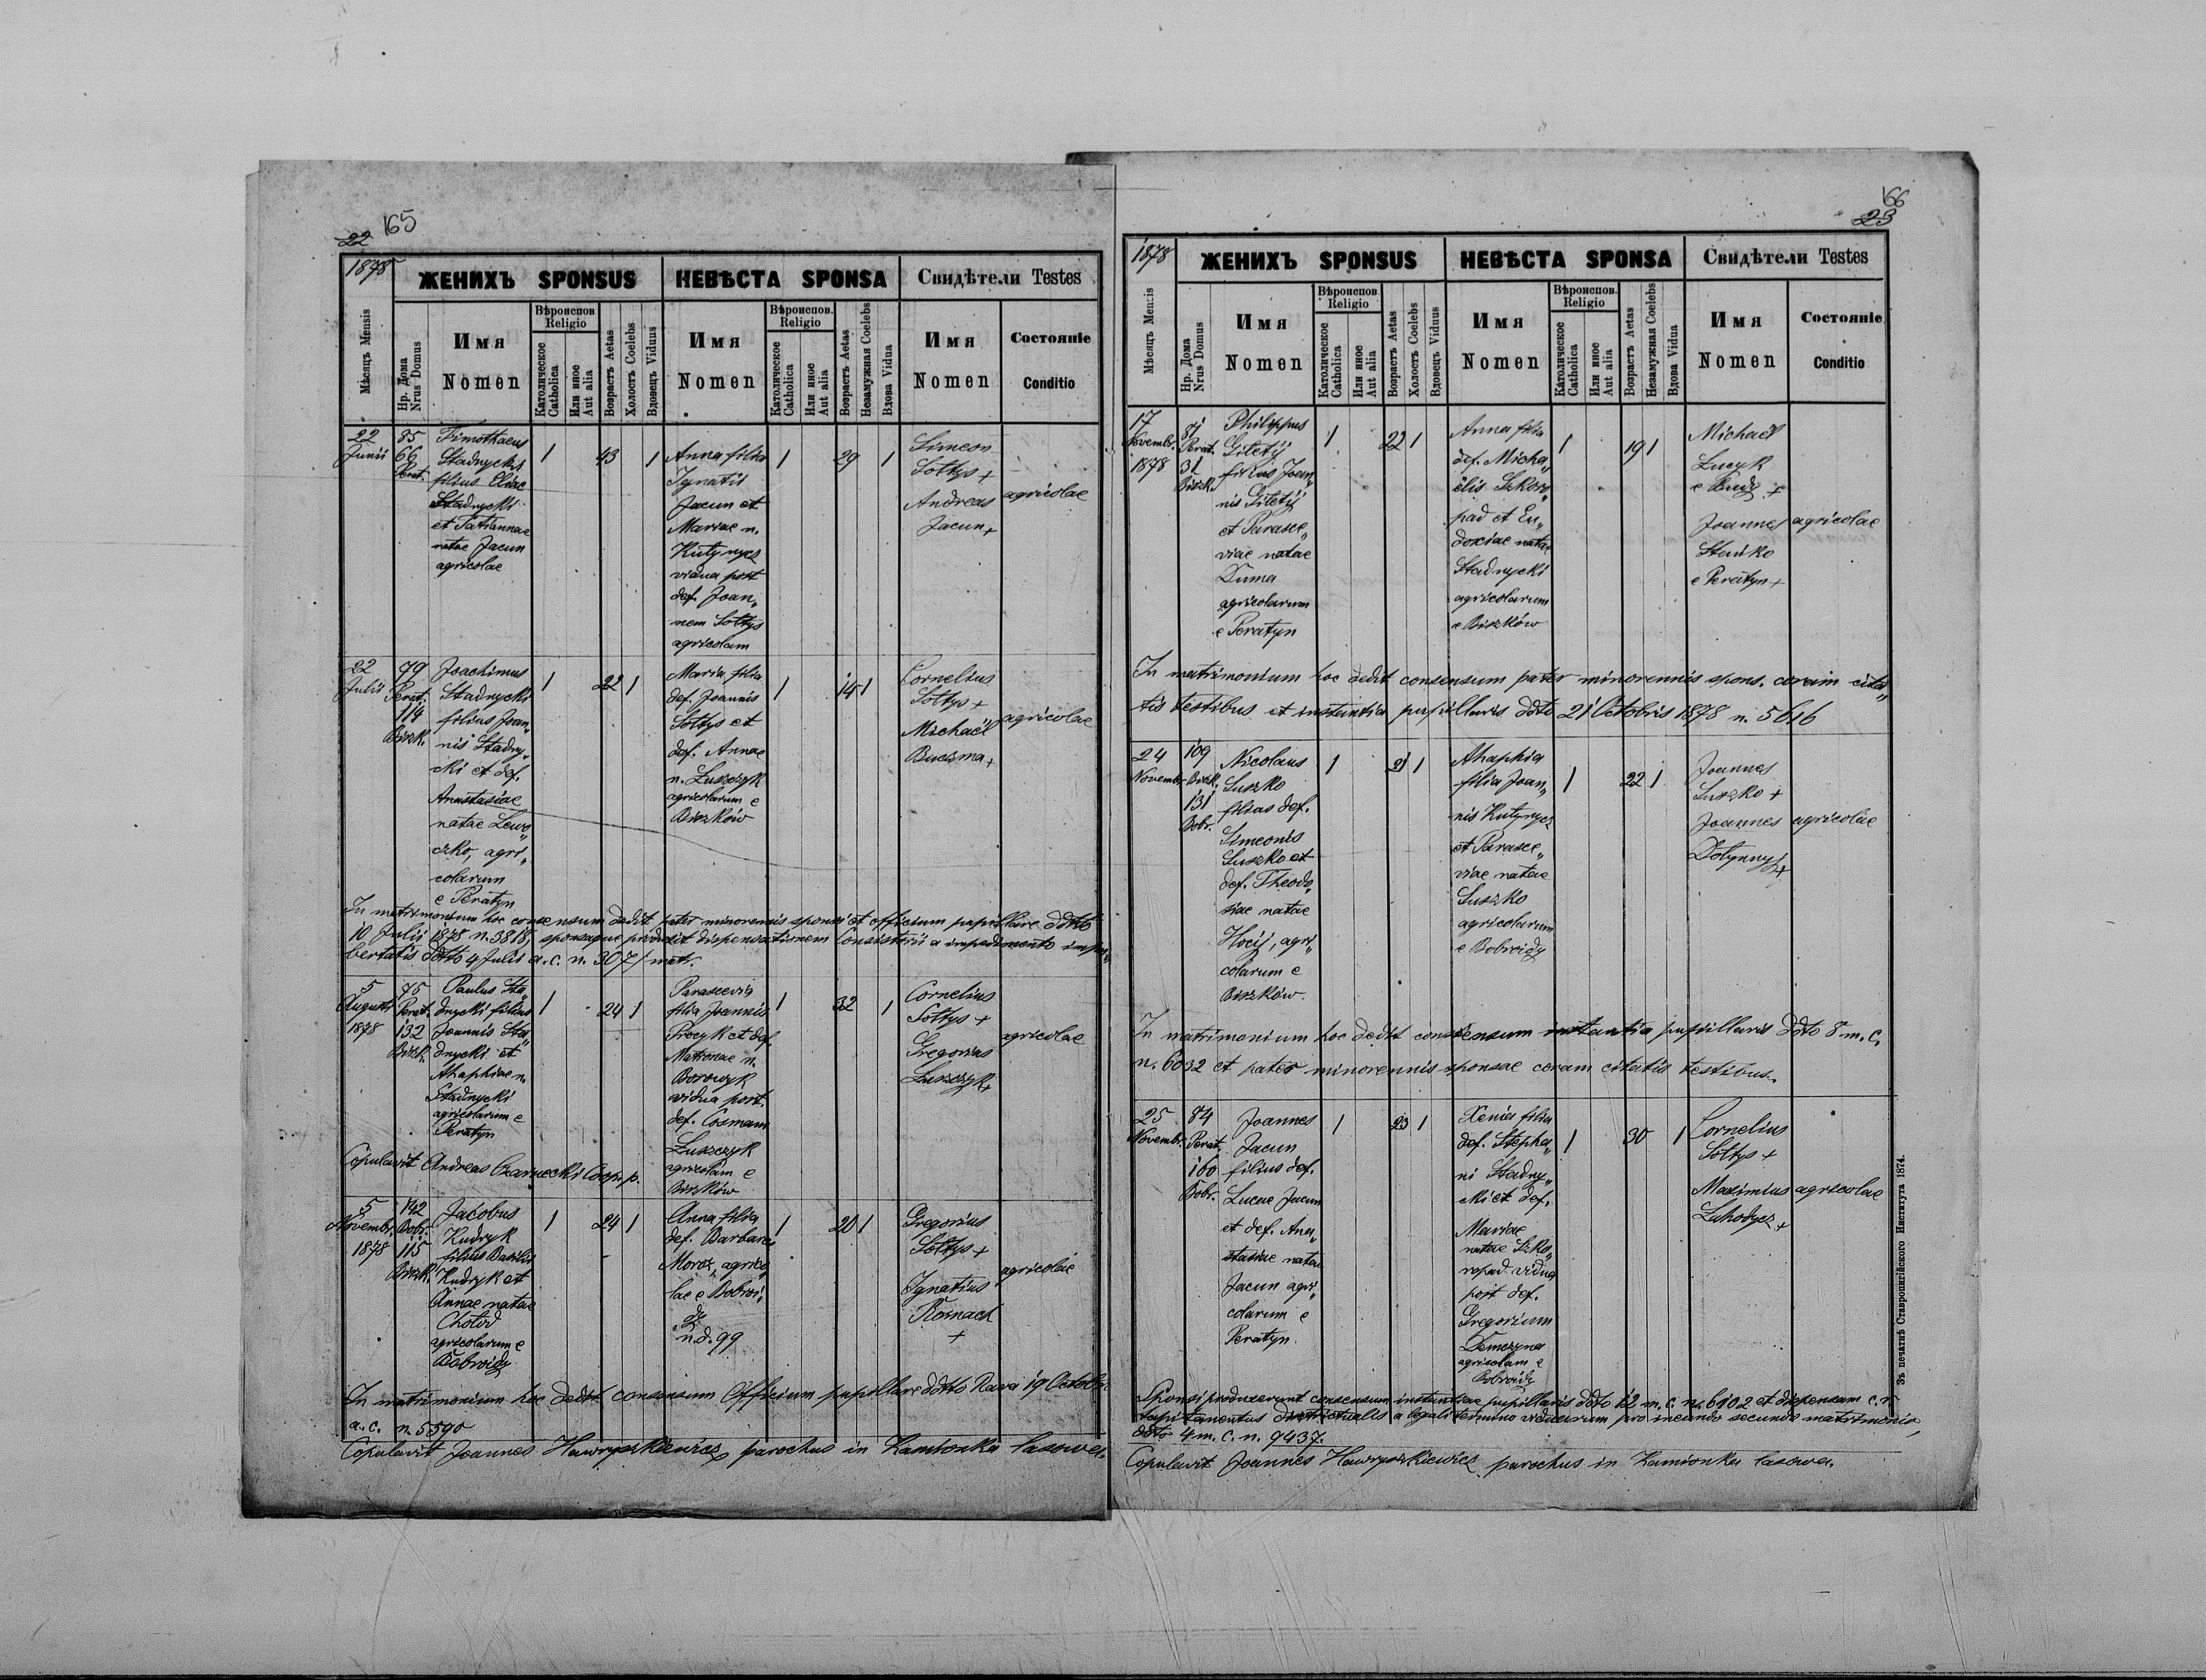 165
22
1878
ЖЕНИХЪ SPONSUS
НЕВѢСТА SPONSA
Свидѣтели Testes
Мѣсяцъ Mensis
Нр. Дома
Nrus Domus
Имя
Nomen
Вѣроиспов
Religio
Католическое
Catholica
Или иное
Aut alia
Возрастъ Aetas
Холостъ Coelebs
Вдовецъ Viduus
Имя
Nomen
Вѣроиспов.
Religio
Католическое
Catholica
Или иное
Aut alia
Возрастъ Aetas
Незамужная Coelebs
Вдова Vidua
Имя
Nomen
Состоянiе
Conditio
22
Junii
85
66
Perat.
Timothaeus
Stadnycki
filius Eliae
Stadnycki
et Tatiannae
natae Jacun
agricolae
1
43
1
Anna filia
Ignatii
Jacun et
Mariae n.
Kutynycz
vidua post
def. Joan„
nem Sołtys
agricolam
1
29
1
Simeon
Sołtys +
Andreas
Jacun +
agricolae
22
Julii
79
Perat.
114
Biszk.
Joachimus
Stadnycki
filius Joan„
nis Stadny„
cki et def.
Anastasiae
natae Lewo„
czko, agri„
colarum
e Peratyn
1
22
1
Maria filia
def. Joannis
Sołtys et
def. Annae
n. Łuszczyk
agricolarum e
Biszków
1
15
1
Cornelius
Sołtys +
Michaël
Buczma +
agricolae
In matrimonium hoc consensum dedit pater minorennis sponsi et officium pupillare ddtto
10 Julii 1878 n. 3818, sponsaque produxit dispensationem Consistorii a impedimento impu„
bertatis ddtto 4 Julii a. c. n. 307/matr.
5
Augusti
1878
75
Perat.
132
Biszk.
Paulus Sta„
dnycki filius
Joannis Sta„
dnycki et
Ahaphiae n.
Stadnycki
agricolarum e
Peratyn
1
24
1
Parascevia
filia Joannis
Procyk et def.
Matronae n.
Borowyk
vidua post.
def. Cosmam
Łuszczyk
agricolam e
Biszków
1
32
1
Cornelius
Sołtys +
Gregorius
Łuszczyk +
agricolae
Copulavit Andreas Czarnecki Coop. p.
5
Novembr.
1878
142
Bobr.
115
Biszk.
Jacobus
Kudryk
filius Basilii
Kudryk et
Annae natae
Chołod
agricolarum e
Bobroidy
1
24
1
Anna filia
def. Barbarae
Moroz, agrico„
lae e Bobroi„
dy
n. d. 99
1
20
1
Gregorius
Sołtys +
Ignatius
Kosnach
+
agricolae
In matrimonium hoc dedit consensum Officium pupillare ddtto Rawa 19 Octobr.
a. c. n. 5590
Copulavit Joannes Hawryszkiewicz parochus in Kamionka lasowa.
166
23
1878
ЖЕНИХЪ SPONSUS
НЕВѢСТА SPONSA
Свидѣтели Testes
Мѣсяцъ Mensis
Нр. Дома
Nrus Domus
Имя
Nomen
Вѣроиспов
Religio
Католическое
Catholica
Или иное
Aut alia
Возрастъ Aetas
Холостъ Coelebs
Вдовецъ Viduus
Имя
Nomen
Вѣроиспов.
Religio
Католическое
Catholica
Или иное
Aut alia
Возрастъ Aetas
Незамужная Coelebs
Вдова Vidua
Имя
Nomen
Состоянiе
Conditio
17
Novembr.
1878
81
Perat.
31
Biszk.
Philippus
Giletij
filius Joan„
nis Giletij
et Parasce„
viae natae
Duma
agricolarum
e Peratyn
1
22
1
Anna filia
def. Micha„
ëlis Szkoro„
pad et Eu„
doxiae natae
Stadnycki
agricolarum
e Biszków
1
19
1
Michaël
Lucyk
e Rudy +
Joannes
Stańko
e Peratyn +
agricolae
In matrimonium hoc dedit consensum pater minorennis spons. coram cita„
tis testibus et instantia pupillaris ddto 21 Octobris 1878 n. 5616
24
Novembr.
109
Biszk.
131
Bobr.
Nicolaus
Suszko
filius def.
Simeonis
Suszko et
def. Theodo„
siae natae
Hocij, agri„
colarum e
Biszków.
1
21
1
Ahaphia
filia Joan„
nis Kutynycz
et Parasce„
viae natae
Suszko
agricolarum
e Bobroidy
1
22
1
Joannes
Suszko +
Joannes
Dołynny +
agricolae
In matrimonium hoc dedit consensum instantia pupillaris ddto 8 m. c.
n. 6032 et pater minorennis sponsae coram citatis testibus.
25
Novembr.
84
Perat.
160
Bobr.
Joannes
Jacun
filius def.
Lucae Jacun
et def. Ana„
stasiae natae
Jacun agri„
colarum e
Peratyn.
1
23
1
Xenia filia
def. Stepha„
ni Stadny„
cki et def.
Mariae
natae Szko„
ropad vidua
post def.
Gregorium
Demczyna
agricolam e
Bobroidy
1
30
1
Cornelius
Sołtys +
Maximius
Łahodycz +
agricolae
Sponsi produxerunt consensum instantiae pupillaris ddto 12 m. c. n. 6102 et dispensam c. r.
Capitaneatus districtualis a legali termino viduarum pro ineundo secundo matrimonio,
ddto 4 m. c. n. 9437.
Copulavit Joannes Hawryszkiewicz parochus in Kamionka lasowa.
Зъ печатнѣ Ставропигiйского Института 1874.